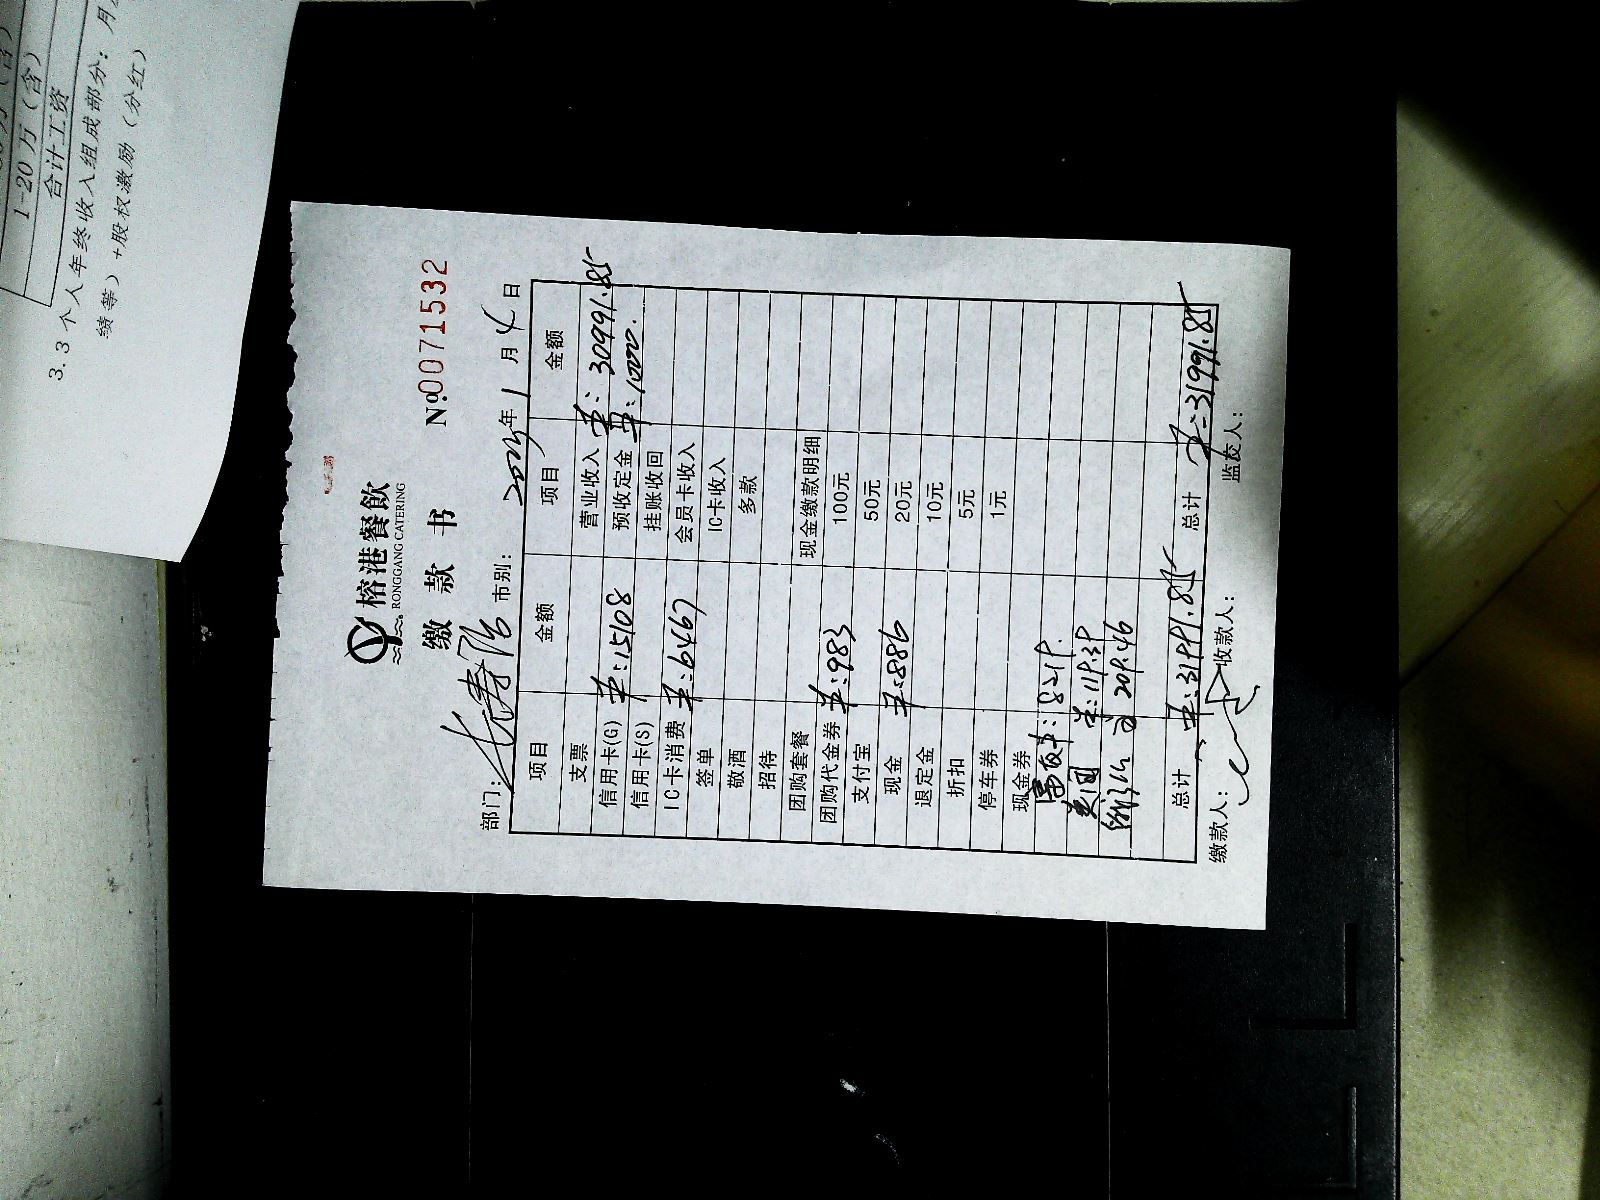 1-20万（含）
合计工资
3.3 个人年终收入组成部分：月
绩等）+股权激励（分红）
榕港餐飲
RONGGANG CATERING
缴 款 书
№0071532
部门： 市别： 年 1 月 4 日
项目 金额 项目 金额
支票 营业收入 30991.85
信用卡(G) 15108 预收定金 1000.
信用卡(S) 挂账收回
IC卡消费 6467 会员卡收入
签单 IC卡收入
敬酒 多款
招待
团购套餐 现金缴款明细
团购代金券 983 100元
支付宝 50元
现金 886 20元
退定金 10元
折扣 5元
停车券 1元
现金券
美团
总计 总计 31991.85
缴款人： 收款人： 监交人：